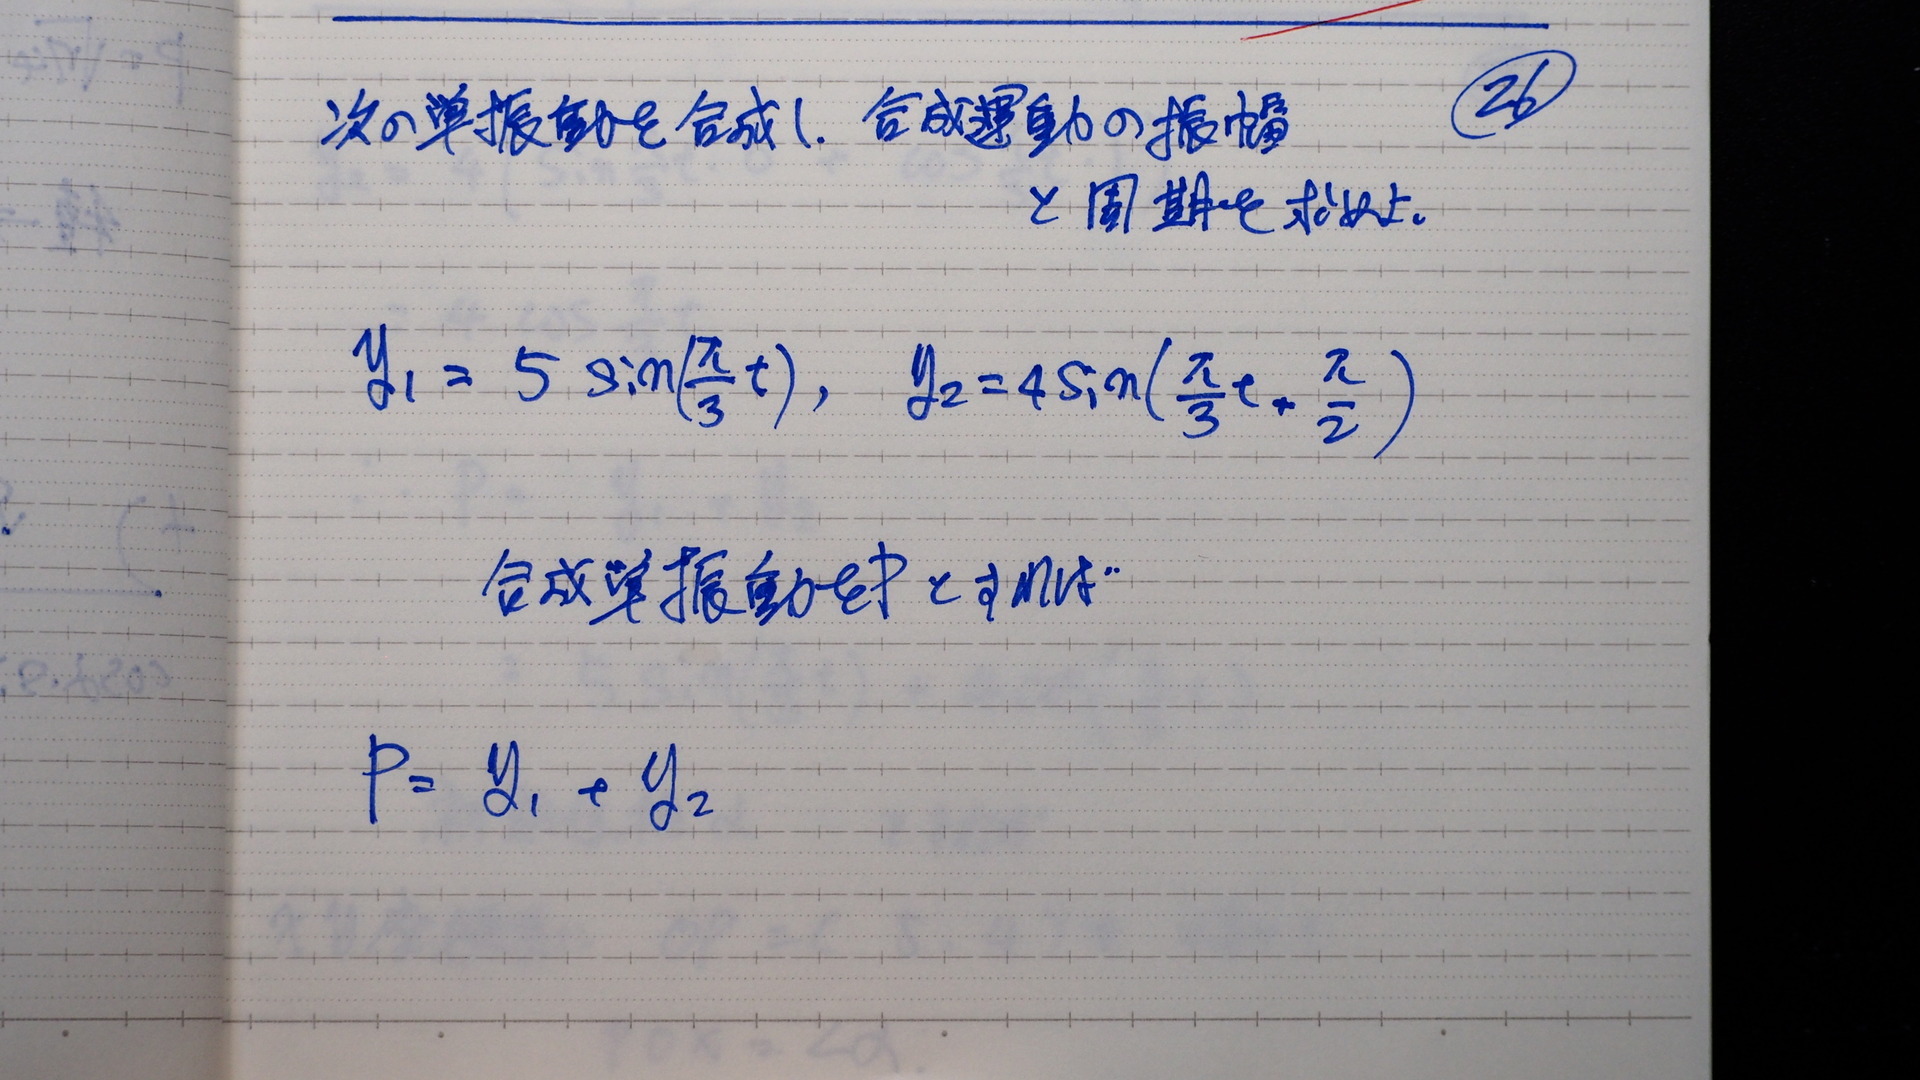 次の単振動を合成し、合成運動の振幅
26
と周期を求めよ。
y₁ = 5 sin(π/3 t), y₂ = 4 sin(π/3 t + π/2)
合成単振動をPとすれば
P = y₁ + y₂